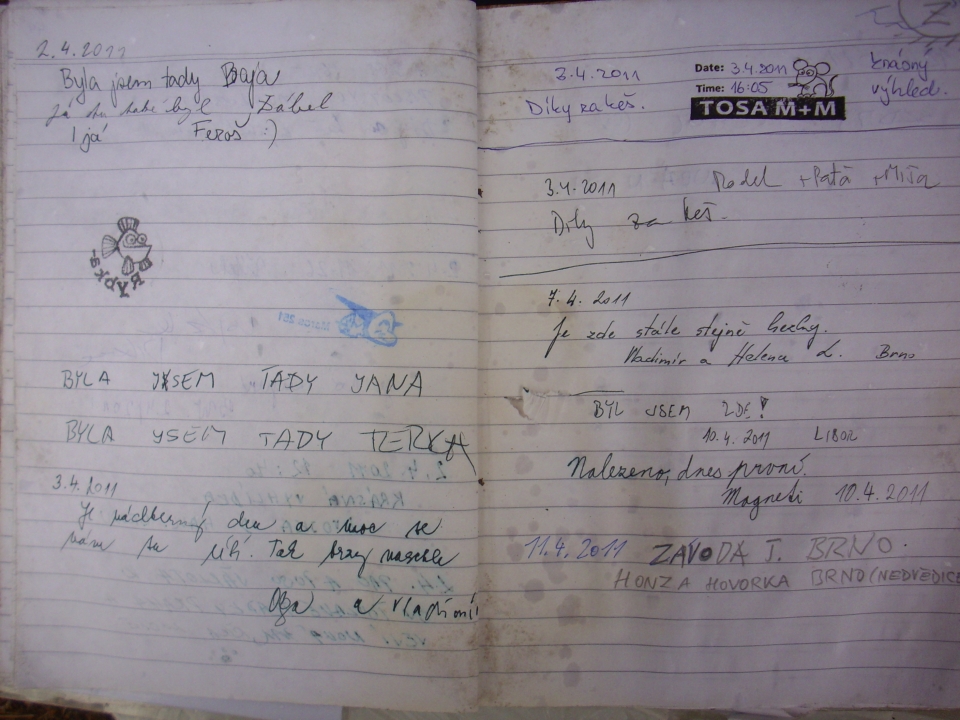 2.4.2011
Byla jsem tady Baja
Já tu také byl Ďábel
I já Feroš :)
BYLA JSEM TADY JANA
BYLA JSEM TADY TERKA
3.4.2011
Je nádherný den a moc se
nám tu líbí. Tak brzy
a Vladimír
3.4.2011
Díky za keš.
Date: 3.4.2011
Time: 16:05
TOSA M+M
krásný
výhled.
3.4.2011 Radek + Paťa + Míša
Díky za keš.
7.4.2011
Je zde stále stejně hezky.
Vladimír a Helena L. Brno
BYL JSEM ZDE!
10.4.2011 LIBOR
Nalezeno, dnes první.
Magneti 10.4.2011
11.4.2011 ZÁVODA J. BRNO.
HONZA HOVORKA BRNO (NEDVĚDICE